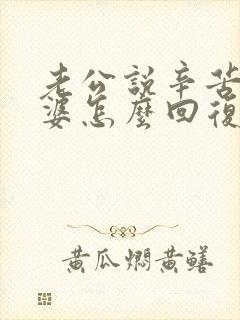 老公說辛苦
婆怎麼回復
黃瓜燜黃鱔